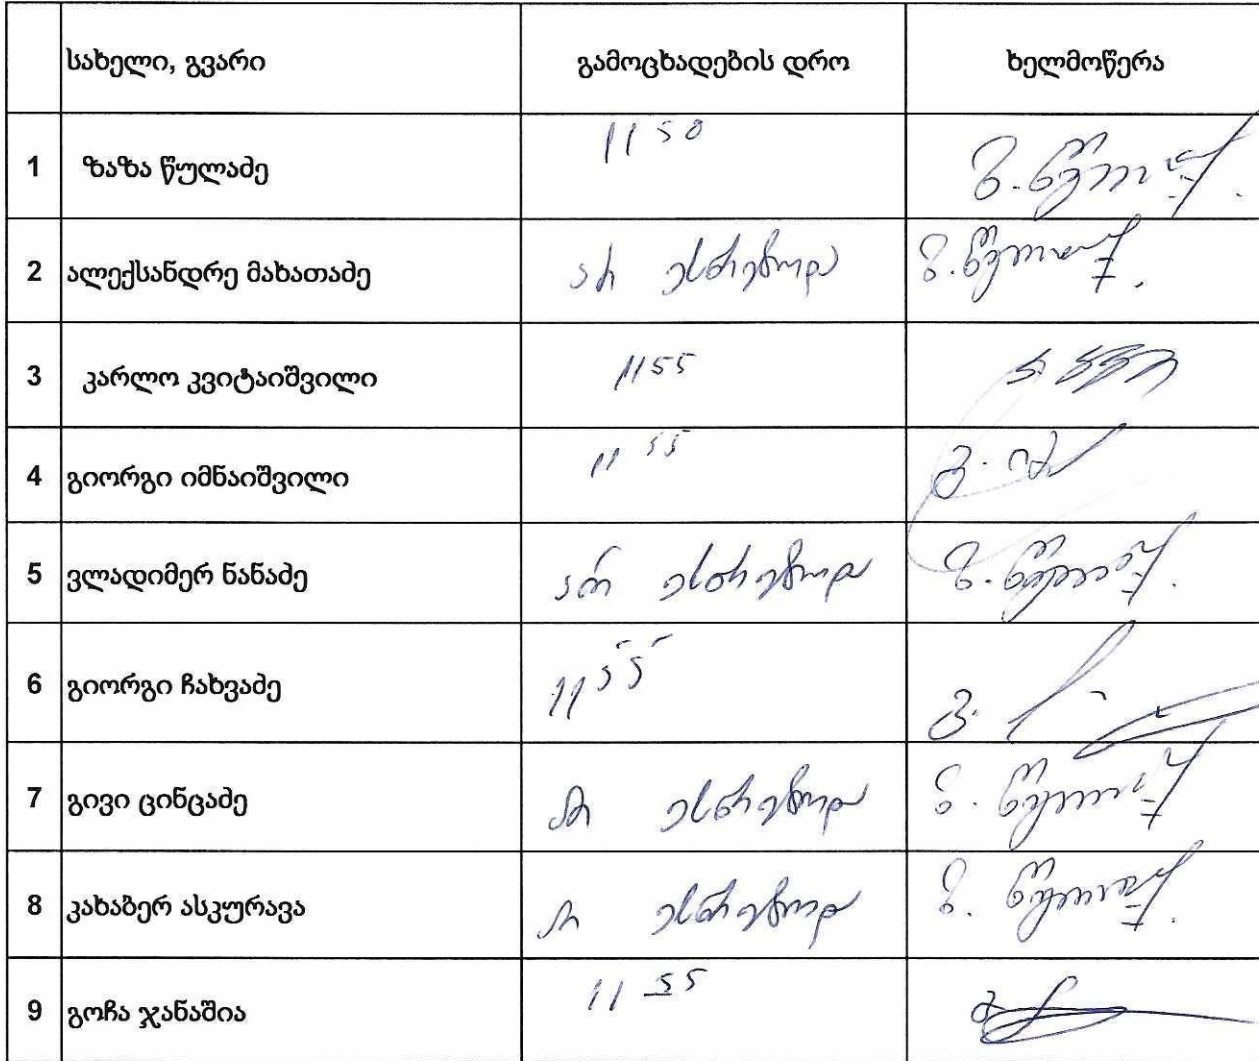 სახელი, გვარი გამოცხადების დრო ხელმოწერა
1 ზაზა წულაძე 11 50 ზ. წულაძე
2 ალექსანდრე მახათაძე არ ესწრებოდა ზ. წულაძე
3 კარლო კვიტაიშვილი 11 55
4 გიორგი იმნაიშვილი 11 55
5 ვლადიმერ ნანაძე არ ესწრებოდა ზ. წულაძე
6 გიორგი ჩახვაძე 11 55
7 გივი ცინცაძე არ ესწრებოდა ზ. წულაძე
8 კახაბერ ასკურავა არ ესწრებოდა ზ. წულაძე
9 გოჩა ჯანაშია 11 55